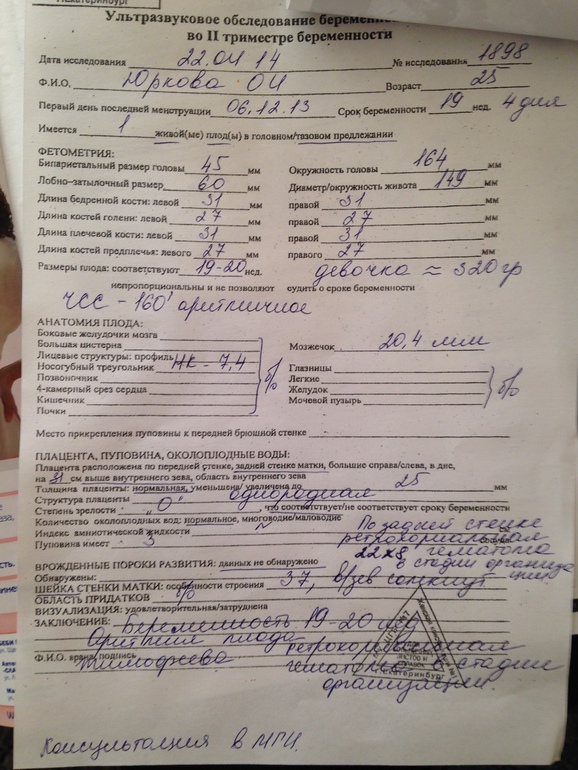 Екатеринбург
Ультразвуковое обследование
во II триместре беременности
Дата исследования 22.04 14 № исследования 1898
Ф.И.О. Юркова ОИ Возраст 25
Первый день последней менструации 06.12.13 Срок беременности 19 нед. 4 дня
Имеется 1 живой(ые) плод(ы) в головном/тазовом предлежании
ФЕТОМЕТРИЯ:
Бипариетальный размер головы 45 мм Окружность головы 164 мм
Лобно-затылочный размер 60 мм Диаметр/окружность живота 149 мм
Длина бедренной кости: левой 31 правой 31
Длина костей голени: левой 27 правой 27
Длина плечевой кости: левой 31 правой 31
Длина костей предплечья: левого 27 правого 27
Размеры плода: соответствуют 19-20 нед. девочка ≈ 320 гр
непропорциональны и не позволяют судить о сроке беременности
ЧСС - 160' аритмичное
АНАТОМИЯ ПЛОДА:
Боковые желудочки мозга
Большая цистерна Мозжечок 20,4 мм
Лицевые структуры: профиль
Носогубный треугольник НК - 7,4 б/о Глазницы
Позвоночник Легкие б/о
4-камерный срез сердца Желудок
Кишечник Мочевой пузырь
Почки
Место прикрепления пуповины к передней брюшной стенке
ПЛАЦЕНТА, ПУПОВИНА, ОКОЛОПЛОДНЫЕ ВОДЫ:
Плацента расположена по передней стенке, задней стенке матки, больше справа/слева, в дне,
на 31 см выше внутреннего зева, область внутреннего зева
Толщина плаценты: нормальная, уменьшена/увеличена до 25 мм
Структура плаценты однородная
Степень зрелости "О" что соответствует/не соответствует сроку беременности
Количество околоплодных вод: нормальное, многоводие/маловодие По задней стенке
Индекс амниотической жидкости N ретрохориальная
Пуповина имеет 3 22х8 гематома
ВРОЖДЕННЫЕ ПОРОКИ РАЗВИТИЯ: данных не обнаружено в стадии организа
Обнаружены: ции
ШЕЙКА СТЕНКИ МАТКИ: особенности строения 37, вз зев сомкнут
ОБЛАСТЬ ПРИДАТКОВ б/о
ВИЗУАЛИЗАЦИЯ: удовлетворительная/затруднена
ЗАКЛЮЧЕНИЕ: Беременность 19-20 нед
Аритмия плода ретрохориальная
Ф.И.О. врача, подпись Тимофеева гематома в стадии
организации.
г.Екатеринбург
Консультация в МГЦ.